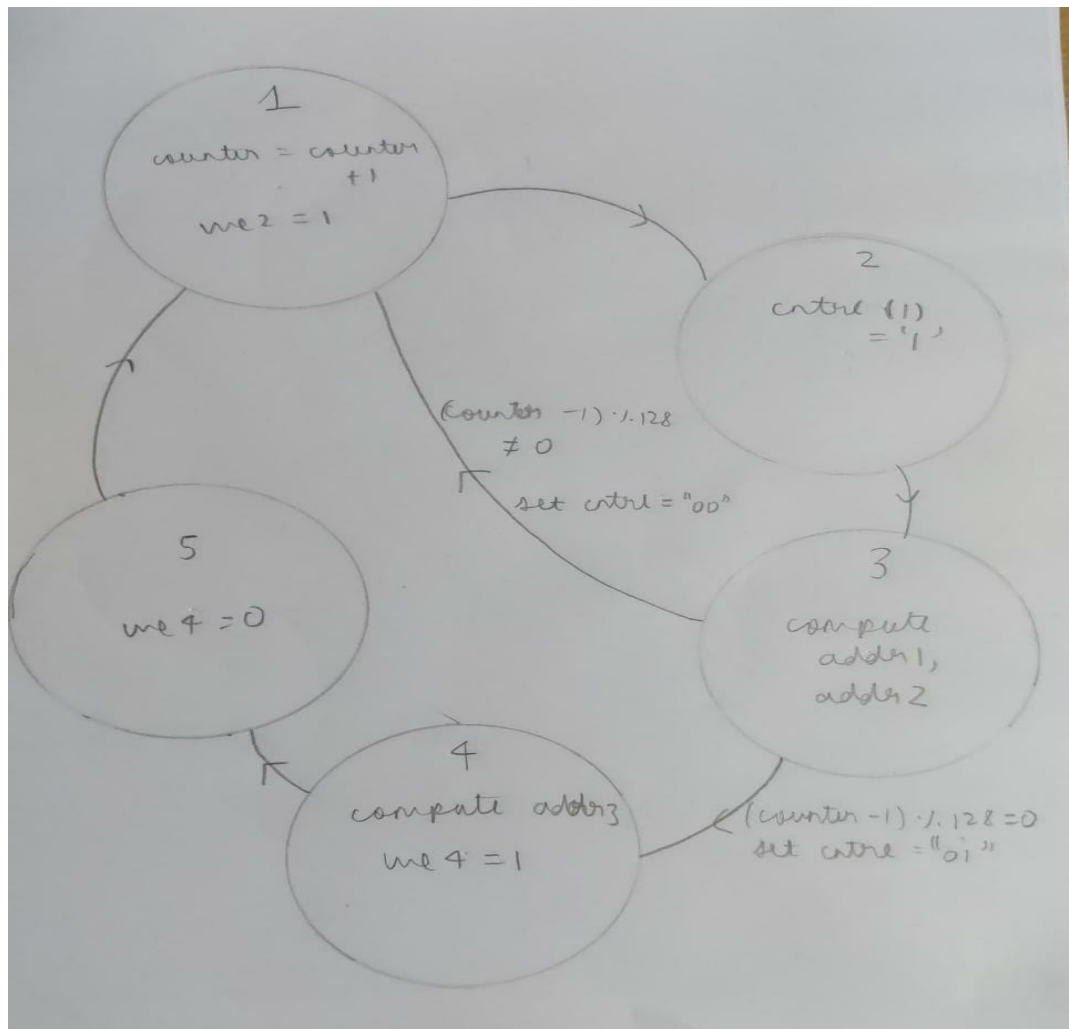 1
counter = counter
+1
me2 = 1
2
cntrl (1)
= '1'
(counter -1) % 128
≠ 0
set cntrl = "00"
3
compute
addr1,
addr2
(counter -1) % 128 = 0
set cntrl = "01"
4
compute addr3
me4 = 1
5
me4 = 0